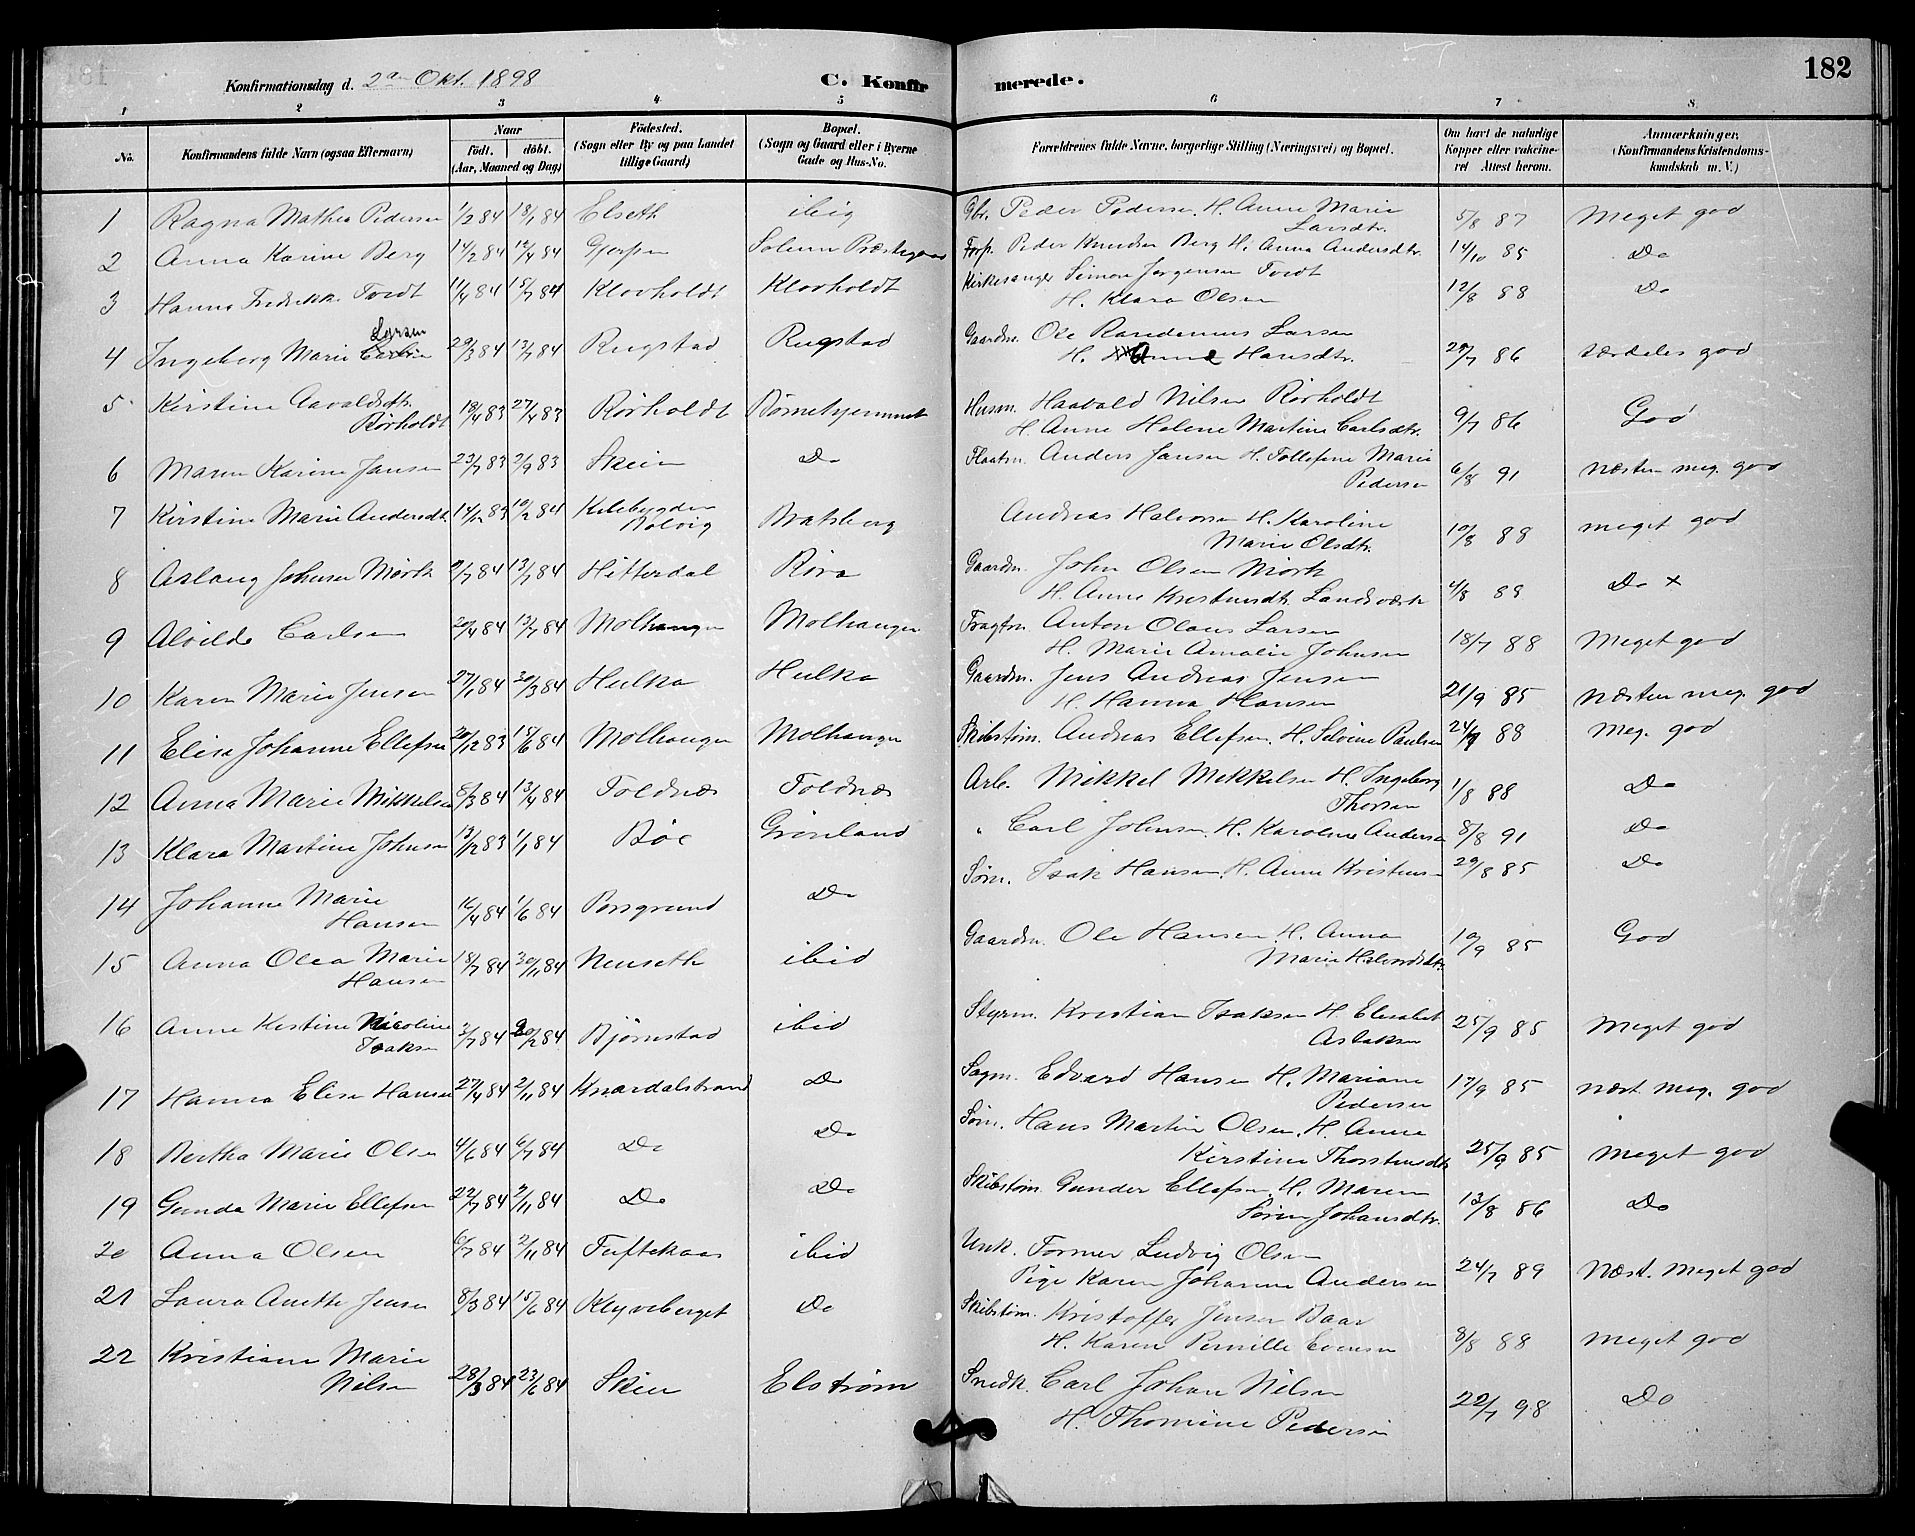 182
Konfirmationsdag d. 2den Okt. 1898 C. Konfirmerede.
1 2 3 4 5 6 7 8
No. Konfirmandens fulde Navn (ogsaa Efternavn) Naar födt. döbt. (Aar, Maaned og Dag) Födested. (Sogn eller By og paa Landet tillige Gaard) Bopæl. (Sogn og Gaard eller i Byerne Gade og Hus-No. Forældrenes fulde Navne, borgerlige Stilling (Næringsvei) og Bopæl. Om havt de naturlige Kopper eller vakcineret Attest herom. Anmærkninger. (Konfirmandens Kristendomskundskab m. V.)
1 Ragna Mathea Pedersen 1/2 84 18/1 84 Elseth ibid Gbr. Peder Pedersen. H. Anne Marie Larsdtr. 5/8 87 Meget god
2 Anna Karine Berg 14/2 84 12/4 84 Gjerpen Solum Præstegaard Forp. Peder Knudsen Berg H. Anna Andersdtr. 14/10 85 Do
3 Hanna Fredrikke Tvedt 11/4 84 15/7 84 Klovholdt Klovholdt Kirkesanger Simon Jørgensen Tvedt H. Klara Olsen 12/8 88 Do
4 Ingeborg Marie Larsen 29/3 84 13/7 84 Rugstad Rugstad Gaardm. Ole Larsen H. Anne Hansdtr. 28/7 86 særdeles god
5 Kirstine Aavaldsdtr. Rørholdt 18/4 83 27/4 83 Rørholdt Børnehjemmet Husm. Haavald Nilsen Rørholdt H. Anne Helene Martine Carlsdtr. 9/7 86 God
6 Maren Karine Jansen 23/7 83 2/9 83 Skien Do Flaatm. Anders Jansen H. Tollefine Marie Pedersen 6/8 91 næsten meg. god
7 Kirstine Marie Andersdtr. 14/12 83 10/2 84 Kilebygden Solvig Bratsberg Andreas Halvorsen H. Karoline Marie Olsdtr. 10/8 88 meget god
8 Aslaug Johnsen Mørk 2/7 84 13/7 84 Hitterdal Røra Gaardm. John Olsen Mørk H. Anne Kristensdtr. Landsværk 4/8 89 Do x
9 Alvilde Carlsen 20/4 84 13/7 84 Molhaugen Molhaugen Fragtm. Anton Olaus Larsen H. Marie Amalie Johnsen 18/7 88 Meget god
10 Karen Marie Jensen 27/1 84 30/3 84 Hulka Hulka Gaardm. Jens Andreas Jensen H. Hanna Hansen 21/9 85 næsten meg. god
11 Elise Johanne Ellefsen 20/12 83 15/6 84 Molhaugen Molhaugen Skibstøm. Andreas Ellefsen. H. Silvine Paulsen 24/7 88 Meg. god
12 Anna Marie Mikkelsen 8/3 84 13/4 84 Foldnæs Foldnæs Arb. Mikkel Mikkelsen H. Ingeborg Thorsen 1/8 88 Do
13 Klara Martine Johnsen 13/12 83 1/1 84 Böe Grønland " Carl Johnsen. H. Karoline Andersen 8/8 91 Do
14 Johanne Marie Hansen 16/4 84 1/6 84 Porsgrund Do Søm. Isak Hansen. H. Anne Kristens 29/8 85 Do
15 Anna Olea Marie Hansen 18/7 84 30/11 84 Nenseth ibid Gaardm. Ole Hansen. H. Anna Marie Halvorsdtr. 10/9 85 God
16 Anne Kistine Nicoline Isaksen 2/7 84 20/2 84 Bjørnstad ibid Styrm. Kristian Isaksen H. Elisabet Aslaksen 25/9 85 Meget god
17 Hanna Elise Hansen 27/4 84 2/11 84 Knardalstrand Do Sagm. Edvard Hansen H. Mariane Pedersen 17/9 85 næst. meg. god
18 Bertha Marie Olsen 4/6 84 6/7 84 Do Do Søm. Hans Martin Olsen. H. Anne Kirstine Thorstensdtr. 25/9 85 meget god
19 Gunda Marie Ellefsen 22/7 84 2/11 84 Do Do Skibstøm. Gunder Ellefsen. H. Maren Sørine Johansdtr. 13/8 86 Do
20 Anna Olsen 6/7 84 2/11 84 Tuftekaas ibid Unk. Former Ludvig Olsen Pige Karen Johanne Andersen 24/7 89 Næst. meget god
21 Laura Anette Jensen 8/3 84 15/6 84 Klyveberget Do Skibstøm. Kristoffer Jensen Baar H. Karen Pernille Evensen 8/8 88 meget god
22 Kristiane Marie Nilsen 28/3 84 23/6 84 Skien Elstrøm Snedk. Carl Johan Nilsen H. Thomine Pedersen 22/7 98 Do